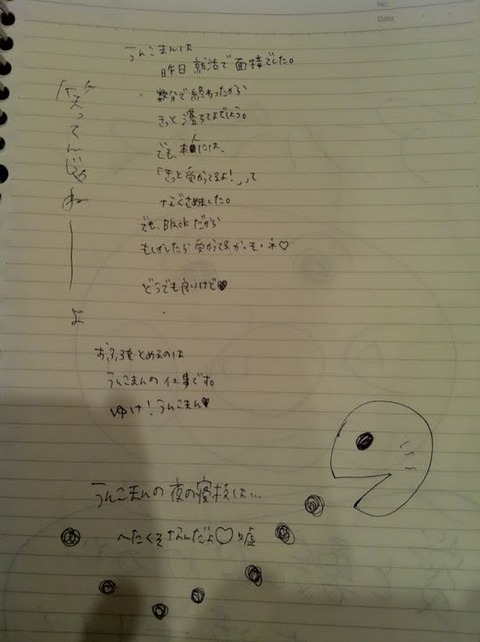 No.
Date
うんこまんは
昨日就活で面接でした。
数分で終わったから
きっと落ちてるでしょう。
でも、本人には、
「きっと受かってるよ!」って
なぐさめました。
でも、Blackだから
もしかしたら受かってるかも・ネ♡
どうでも良いけど♥
笑ってんじゃねーよ
おふろをとめるのは
うんこまんの仕事です。
ゆけ!うんこまん♥
うんこまんの夜の寝技は…
へたくそなんだよ♡嘘